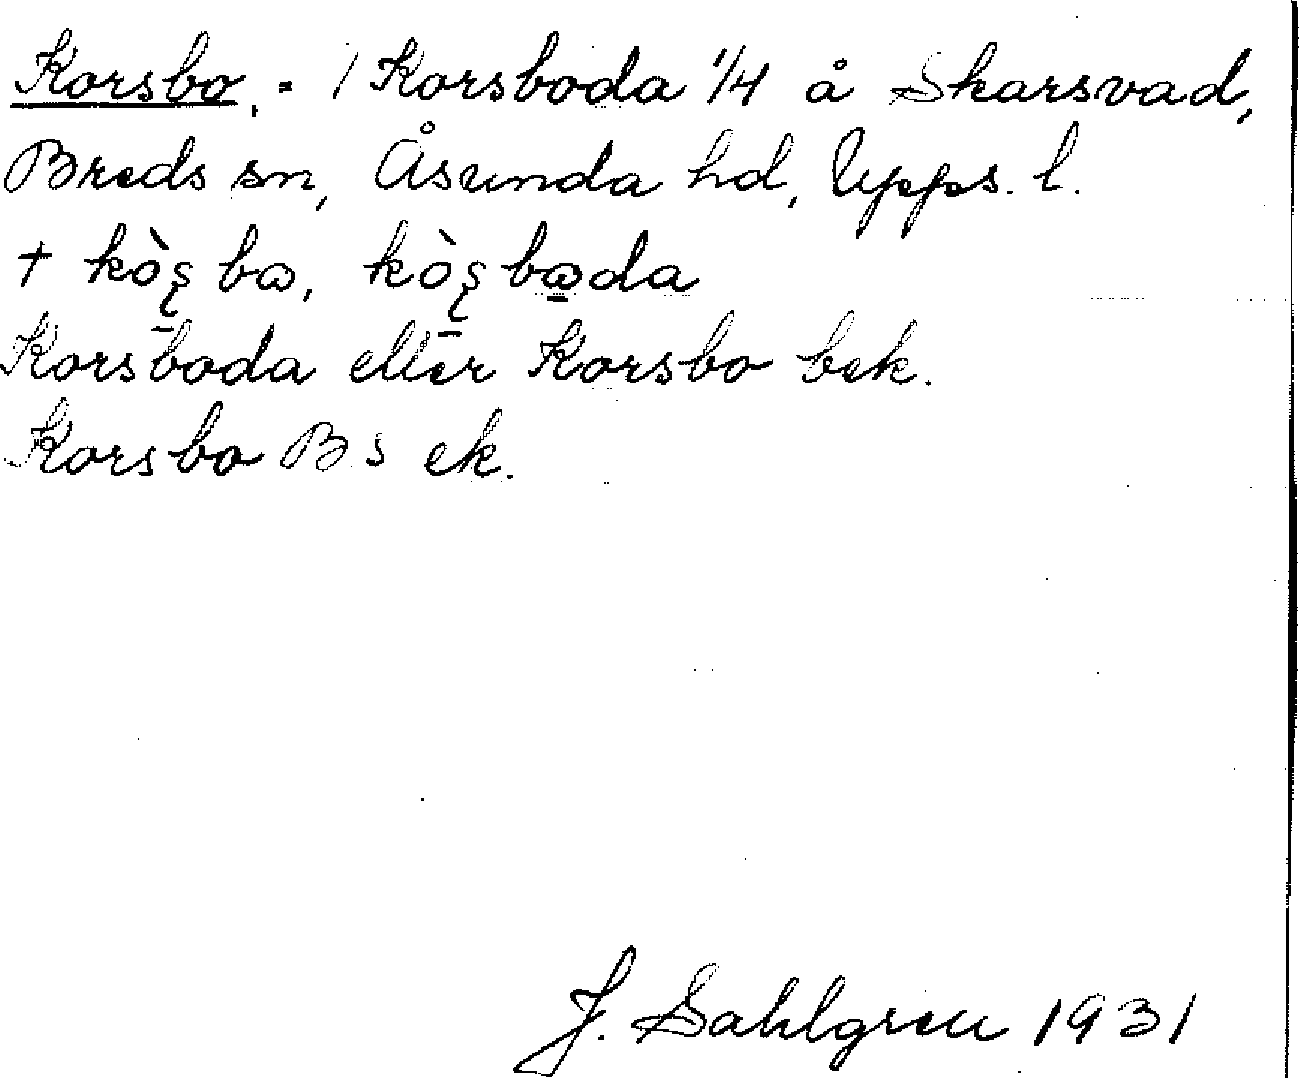 Korsbo, = / Korsboda 1/4 å Skarsvad,
Breds sn, Åsunda hd, Upps. l.
+ kòş bɷ, kòş bɷda
Korsboda eller Korsbo bek.
Korsbo Bs ek.
J. Sahlgren 1931